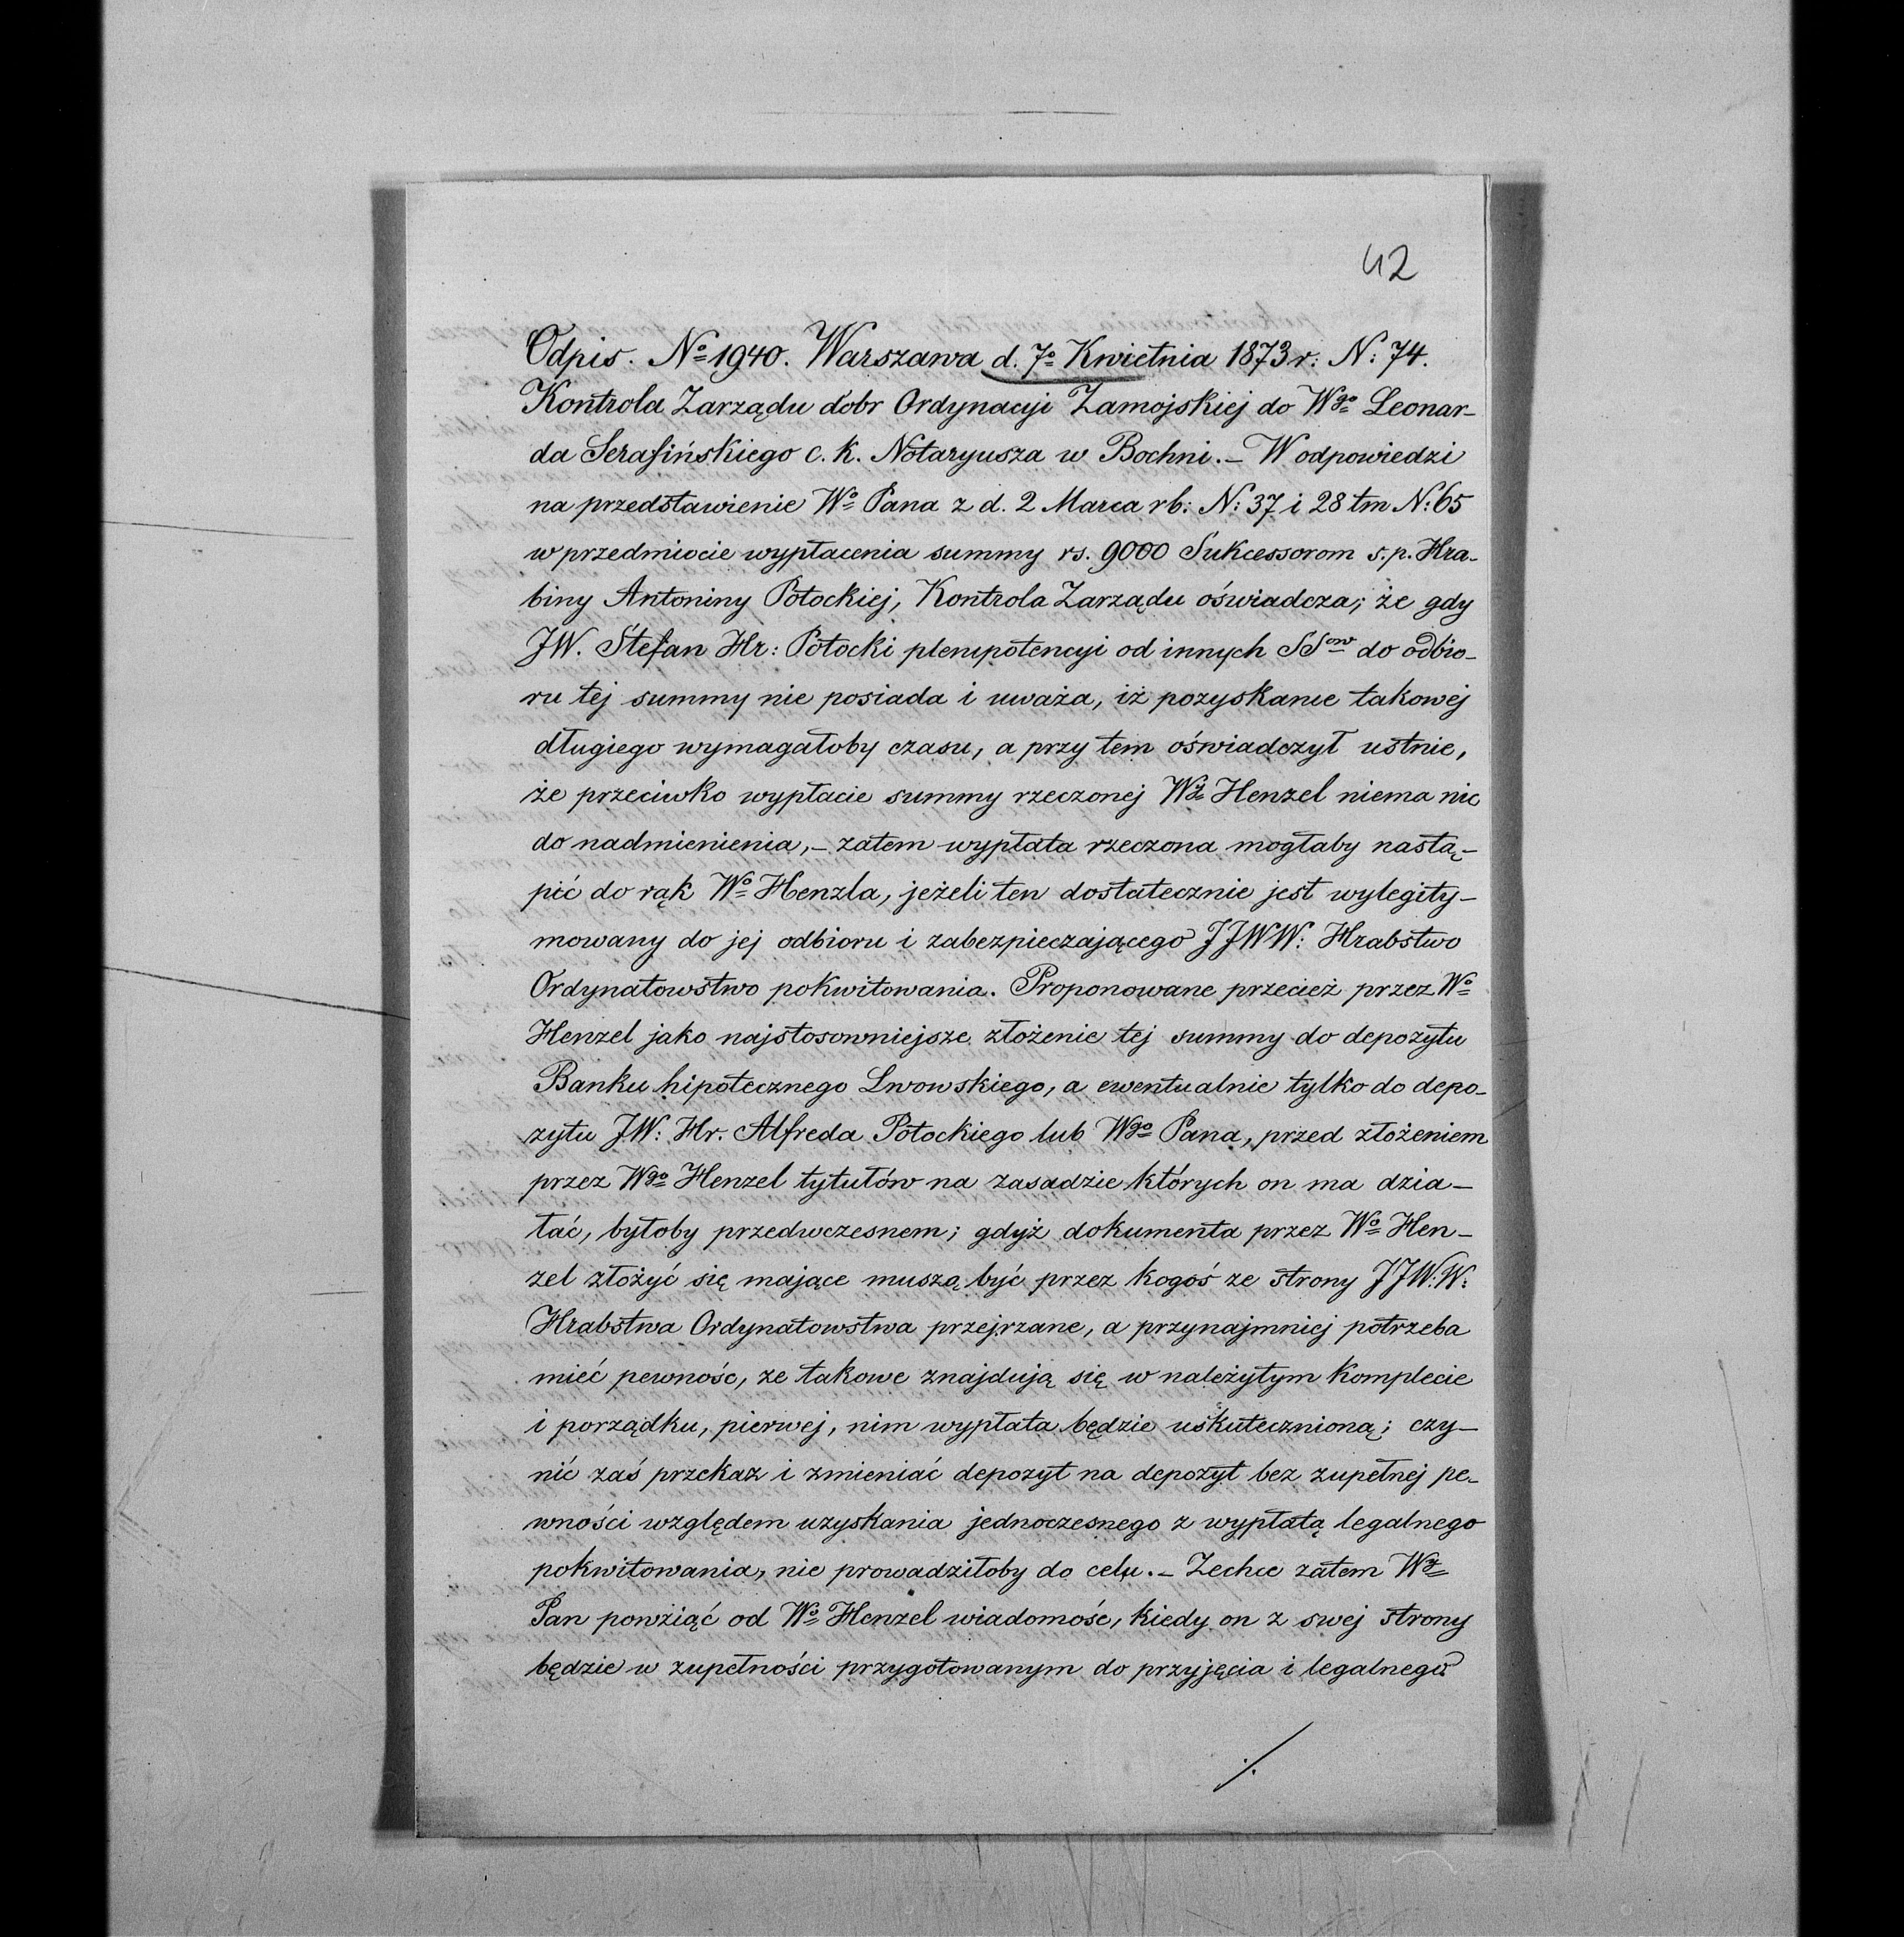 42
Odpis. No 1940. Warszawa d. 7o Kwietnia 1873 r: N: 74.
Kontrola Zarządu dobr Ordynacyi Zamojskiej do Wgo Leonar-
da Serafińskiego c. k. Notaryusza w Bochni. – W odpowiedzi
na przedstawienie Wo Pana z d. 2 Marca rb: N: 37 i 28 tm N: 65
w przedmiocie wypłacenia summy rs. 9000 Sukcessorom s. p. Hra-
biny Antoniny Potockiej, Kontrola Zarządu oświadcza; że gdy
JW. Stefan Hr: Potocki plenipotencyi od innych SSow do odbio-
ru tej summy nie posiada i uważa, iż pozyskanie takowej
długiego wymagałoby czasu, a przy tem oświadczył ustnie,
że przeciwko wypłacie summy rzeczonej Wy Henzel niema nic
do nadmienienia, – zatem wypłata rzeczona mogłaby nastą-
pić do rąk Wo Henzla, jeżeli ten dostatecznie jest wylegity-
mowany do jej odbioru i zabezpieczającego JJWW: Hrabstwo
Ordynatowstwo pokwitowania. Proponowane przecież przez Wo
Henzel jako najstosowniejsze złożenie tej summy do depozytu
Banku hipotecznego Lwowskiego, a ewentualnie tylko do depo-
zytu JW: Hr. Alfreda Potockiego lub Wgo Pana, przed złożeniem
przez Wgo Henzel tytułów na zasadzie których on ma dzia-
łać, byłoby przedwczesnem; gdyż dokumenta przez Wo Hen-
zel złożyć się mające muszą być przez kogoś ze strony JJW:W:
Hrabstwa Ordynatowstwa przejrzane, a przynajmniej potrzeba
mieć pewnośc, ze takowe znajdują się w należytym komplecie
i porządku, pierwej, nim wypłata będzie uskutecznioną; czy-
nić zaś przekaz i zmieniać depozyt na depozyt bez zupełnej pe-
wności względem uzyskania jednoczesnego z wypłatą legalnego
pokwitowania, nie prowadziłoby do celu. – Zechce zatem Wy
Pan powziąć od Wo Henzel wiadomośc, kiedy on z swej strony
będzie w zupełności przygotowanym do przyjęcia i legalnego
./.